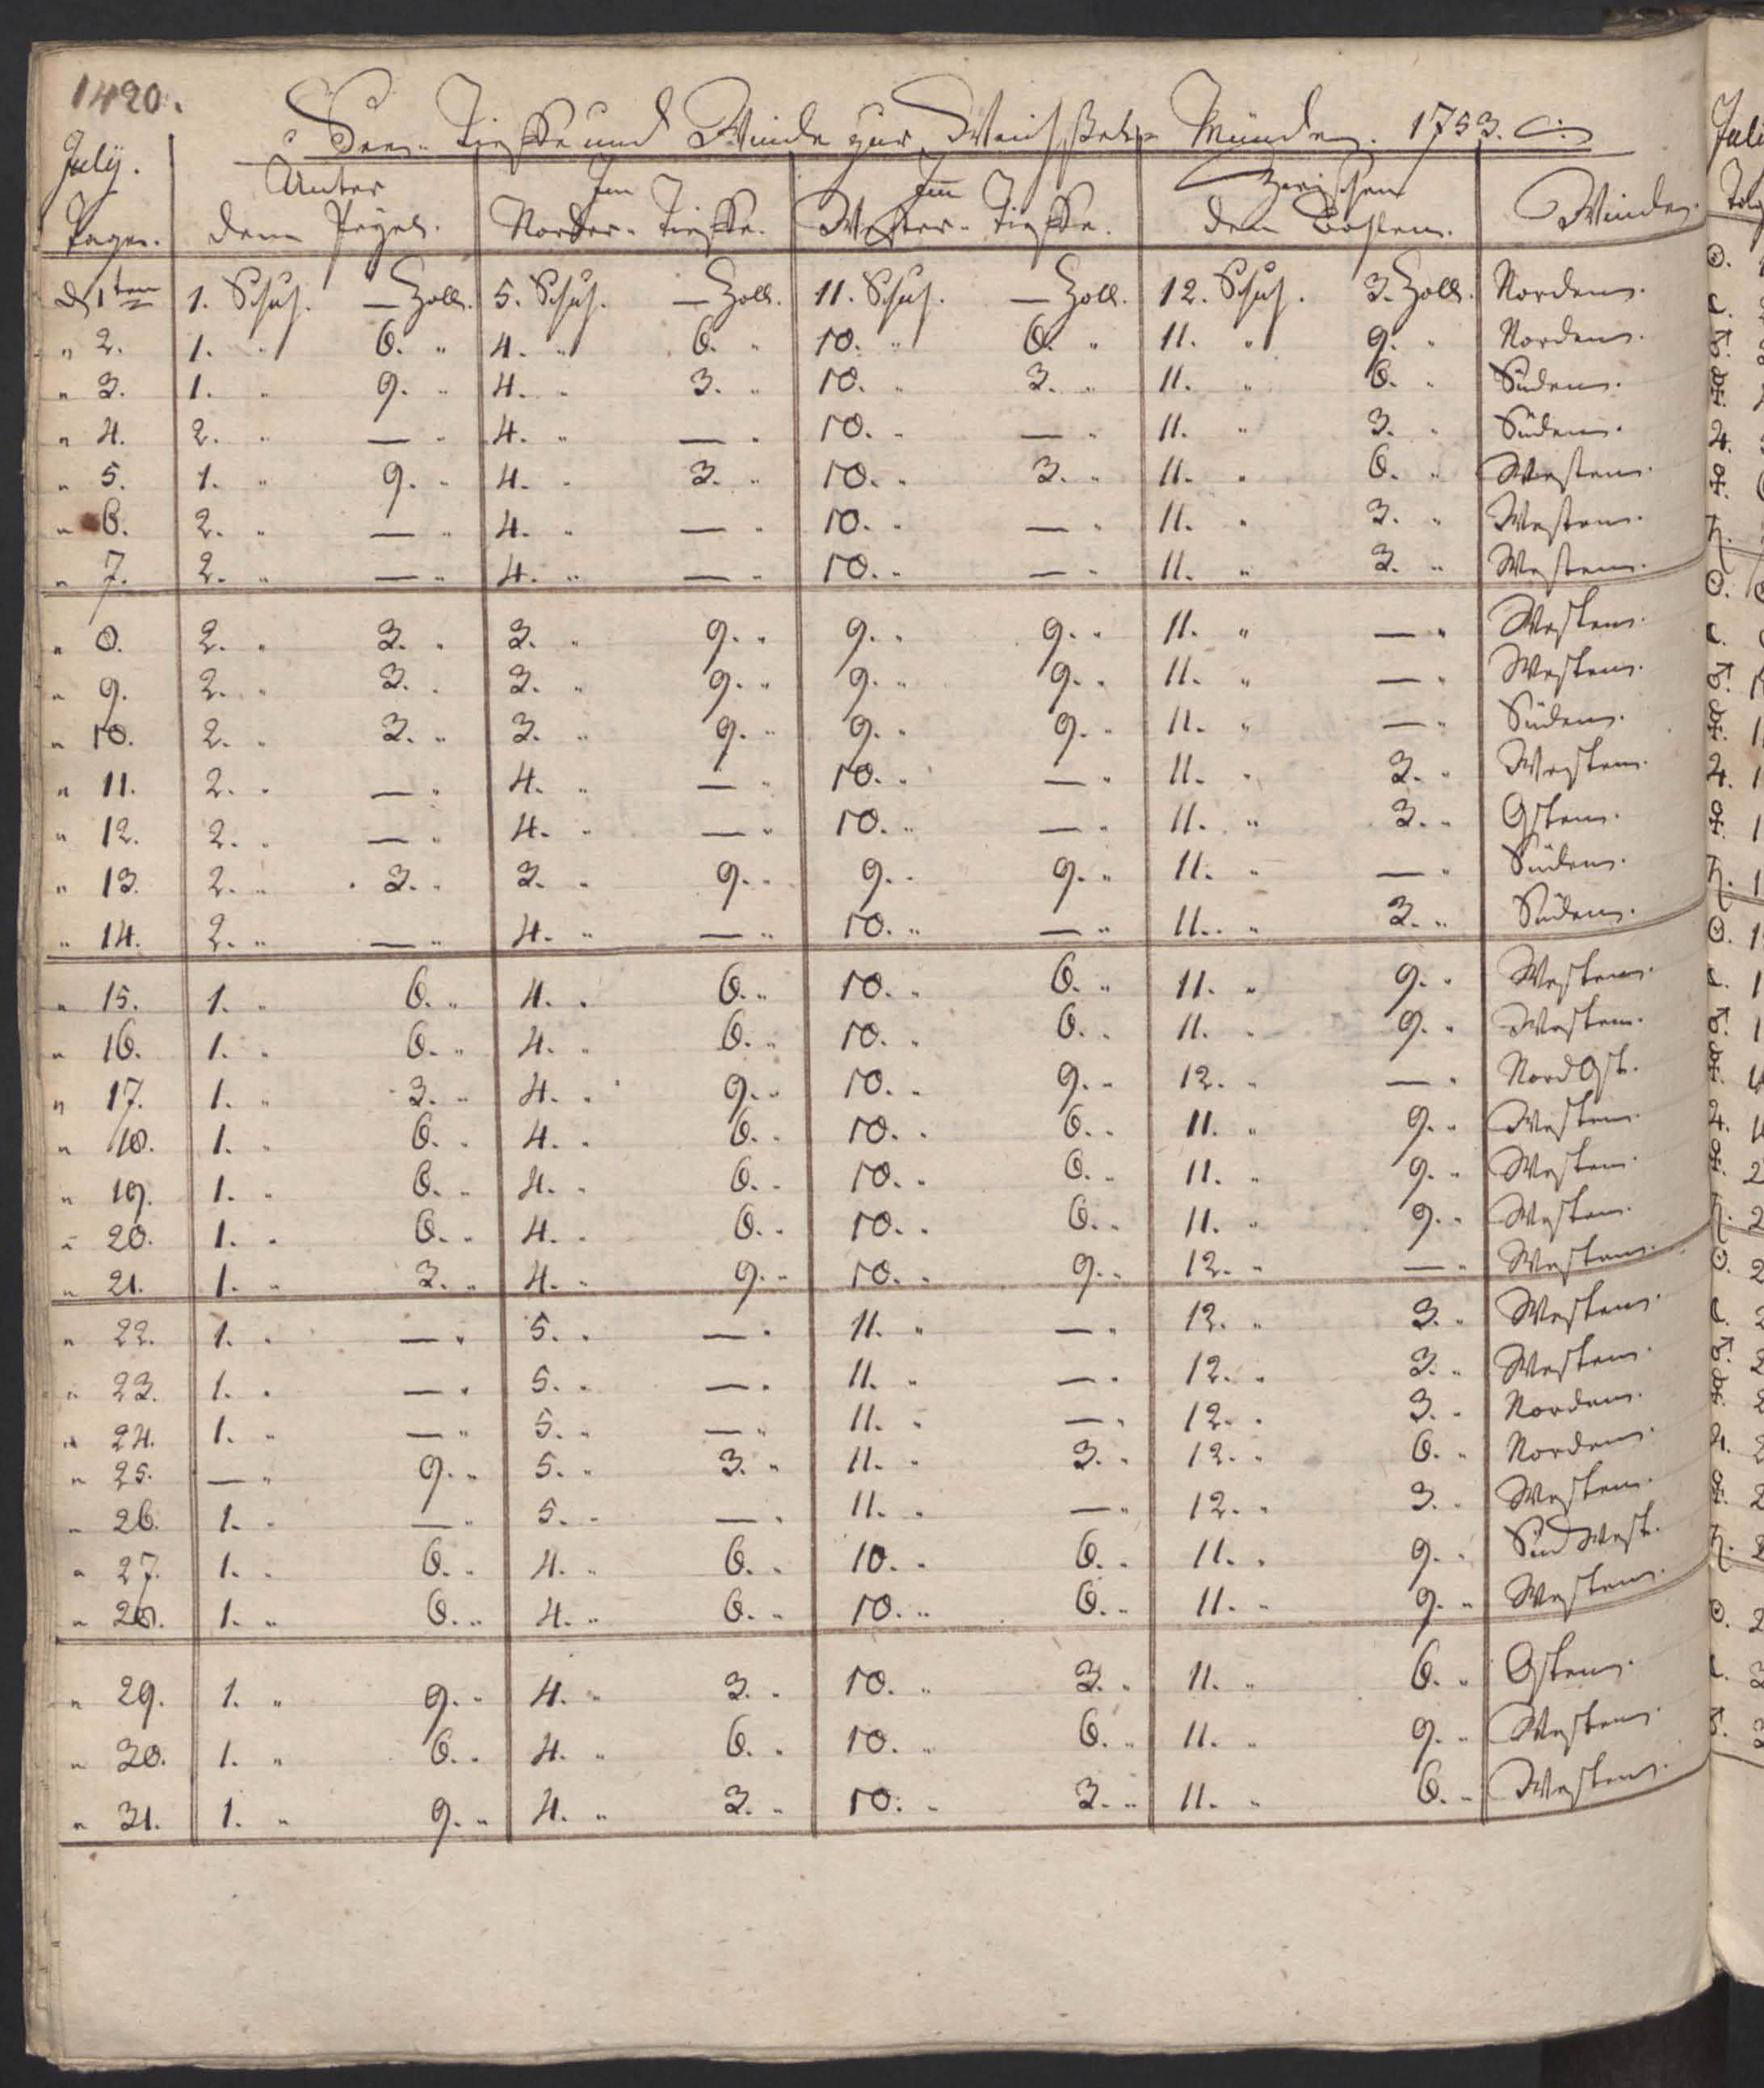 1420.
See-Tieffe und Winde zur Weichsel-Münde. 1753.
July. Unter Im Im Zwischen
Tage. dem Pegel. Norder-Tieffe. Wester-Tieffe. den Bohlen. Winde.
d 1ten 1. Schuh. — Zoll. 5. Schuh. — Zoll. 11. Schuh. — Zoll. 12. Schuh. 3. Zoll. Norden.
" 2. 1. " 6. " 4. " 6. " 10. " 6. " 11. " 9. " Norden.
" 3. 1. " 9. " 4. " 3. " 10. " 3. " 11. " 6. " Süden.
" 4. 2. " — " 4. " — " 10. " — " 11. " 3. " Süden.
" 5. 1. " 9. " 4. " 3. " 10. " 3. " 11. " 6. " Westen.
" 6. 2. " — " 4. " — " 10. " — " 11. " 3. " Westen.
" 7. 2. " — " 4. " — " 10. " — " 11. " 3. " Westen.
" 8. 2. " 3. " 3. " 9. " 9. " 9. " 11. " — " Westen.
" 9. 2. " 3. " 3. " 9. " 9. " 9. " 11. " — " Westen.
" 10. 2. " 3. " 3. " 9. " 9. " 9. " 11. " — " Süden.
" 11. 2. " — " 4. " — " 10. " — " 11. " 3. " Westen.
" 12. 2. " — " 4. " — " 10. " — " 11. " 3. " Osten.
" 13. 2. " 3. " 3. " 9. " 9. " 9. " 11. " — " Süden.
" 14. 2. " — " 4. " — " 10. " — " 11. " 3. " Süden.
" 15. 1. " 6. " 4. " 6. " 10. " 6. " 11. " 9. " Westen.
" 16. 1. " 6. " 4. " 6. " 10. " 6. " 11. " 9. " Westen.
" 17. 1. " 3. " 4. " 9. " 10. " 9. " 12. " — " Nord Ost.
" 18. 1. " 6. " 4. " 6. " 10. " 6. " 11. " 9. " Westen.
" 19. 1. " 6. " 4. " 6. " 10. " 6. " 11. " 9. " Westen.
" 20. 1. " 6. " 4. " 6. " 10. " 6. " 11. " 9. " Westen.
" 21. 1. " 3. " 4. " 9. " 10. " 9. " 12. " — " Westen.
" 22. 1. " — " 5. " — " 11. " — " 12. " 3. " Westen.
" 23. 1. " — " 5. " — " 11. " — " 12. " 3. " Westen.
" 24. 1. " — " 5. " — " 11. " — " 12. " 3. " Norden.
" 25. — " 9. " 5. " 3. " 11. " 3. " 12. " 6. " Norden.
" 26. 1. " — " 5. " — " 11. " — " 12. " 3. " Westen.
" 27. 1. " 6. " 4. " 6. " 10. " 6. " 11. " 9. " Süd West.
" 28. 1. " 6. " 4. " 6. " 10. " 6. " 11. " 9. " Westen.
" 29. 1. " 9. " 4. " 3. " 10. " 3. " 11. " 6. " Osten.
" 30. 1. " 6. " 4. " 6. " 10. " 6. " 11. " 9. " Westen.
" 31. 1. " 9. " 4. " 3. " 10. " 3. " 11. " 6. " Westen.